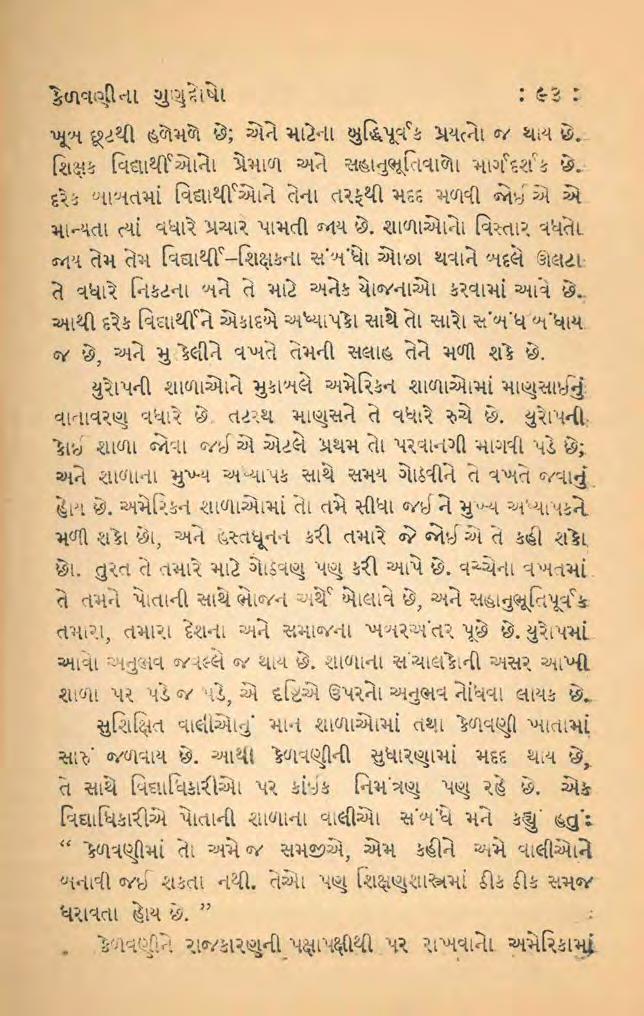 કેળવણીના ગુણદોષો : ૯૩ :
ખૂબ છૂટથી હળેમળે છે; એને માટેના બુદ્ધિપૂર્વક પ્રયત્નો જ થાય છે.
શિક્ષક વિદ્યાર્થીઓનો પ્રેમાળ અને સહાનુભૂતિવાળો માર્ગદર્શક છે.
દરેક બાબતમાં વિદ્યાર્થીઓને તેના તરફથી મદદ મળવી જોઈએ એ
માન્યતા ત્યાં વધારે પ્રચાર પામતી જાય છે. શાળાઓનો વિસ્તાર વધતો
જાય તેમ તેમ વિદ્યાર્થી–શિક્ષકના સંબંધો ઓછા થવાને બદલે ઊલટા
તે વધારે નિકટના બને તે માટે અનેક યોજનાઓ કરવામાં આવે છે.
આથી દરેક વિદ્યાર્થીને એકાદબે અધ્યાપકો સાથે તો સારો સંબંધ બંધાય
જ છે, અને મુશ્કેલીને વખતે તેમની સલાહ તેને મળી શકે છે.
યુરોપની શાળાઓને મુકાબલે અમેરિકન શાળાઓમાં માણસાઈનું
વાતાવરણ વધારે છે. તટસ્થ માણસને તે વધારે રુચે છે. યુરોપની
કોઈ શાળા જોવા જઈએ એટલે પ્રથમ તો પરવાનગી માગવી પડે છે;
અને શાળાના મુખ્ય અધ્યાપક સાથે સમય ગોઠવીને તે વખતે જવાનું
હોય છે. અમેરિકન શાળાઓમાં તો તમે સીધા જઈને મુખ્ય અધ્યાપકને
મળી શકો છો, અને હસ્તધૂનન કરી તમારે જે જોઈએ તે કહી શકો
છો. તુરત તે તમારે માટે ગોઠવણ પણ કરી આપે છે. વચ્ચેના વખતમાં
તે તમને પોતાની સાથે ભોજન અર્થે બોલાવે છે, અને સહાનુભૂતિપૂર્વક
તમારા, તમારા દેશના અને સમાજના ખબરઅંતર પૂછે છે. યુરોપમાં
આવો અનુભવ જવલ્લે જ થાય છે. શાળાના સંચાલકોની અસર આખી
શાળા પર પડે જ પડે, એ દૃષ્ટિએ ઉપરનો અનુભવ નોંધવા લાયક છે.
સુશિક્ષિત વાલીઓનું માન શાળાઓમાં તથા કેળવણી ખાતામાં
સારું જળવાય છે. આથી કેળવણીની સુધારણામાં મદદ થાય છે,
તે સાથે વિદ્યાધિકારીઓ પર કાંઈક નિમંત્રણ પણ રહે છે. એક
વિદ્યાધિકારીએ પોતાની શાળાના વાલીઓ સંબંધે મને કહ્યું હતું:
“ કેળવણીમાં તો અમે જ સમજીએ, એમ કહીને અમે વાલીઓને
બનાવી જઈ શકતા નથી. તેઓ પણ શિક્ષણશાસ્ત્રમાં ઠીક ઠીક સમજ
ધરાવતા હોય છે. ”
કેળવણીને રાજકારણની પક્ષાપક્ષીથી પર રાખવાનો અમેરિકામાં